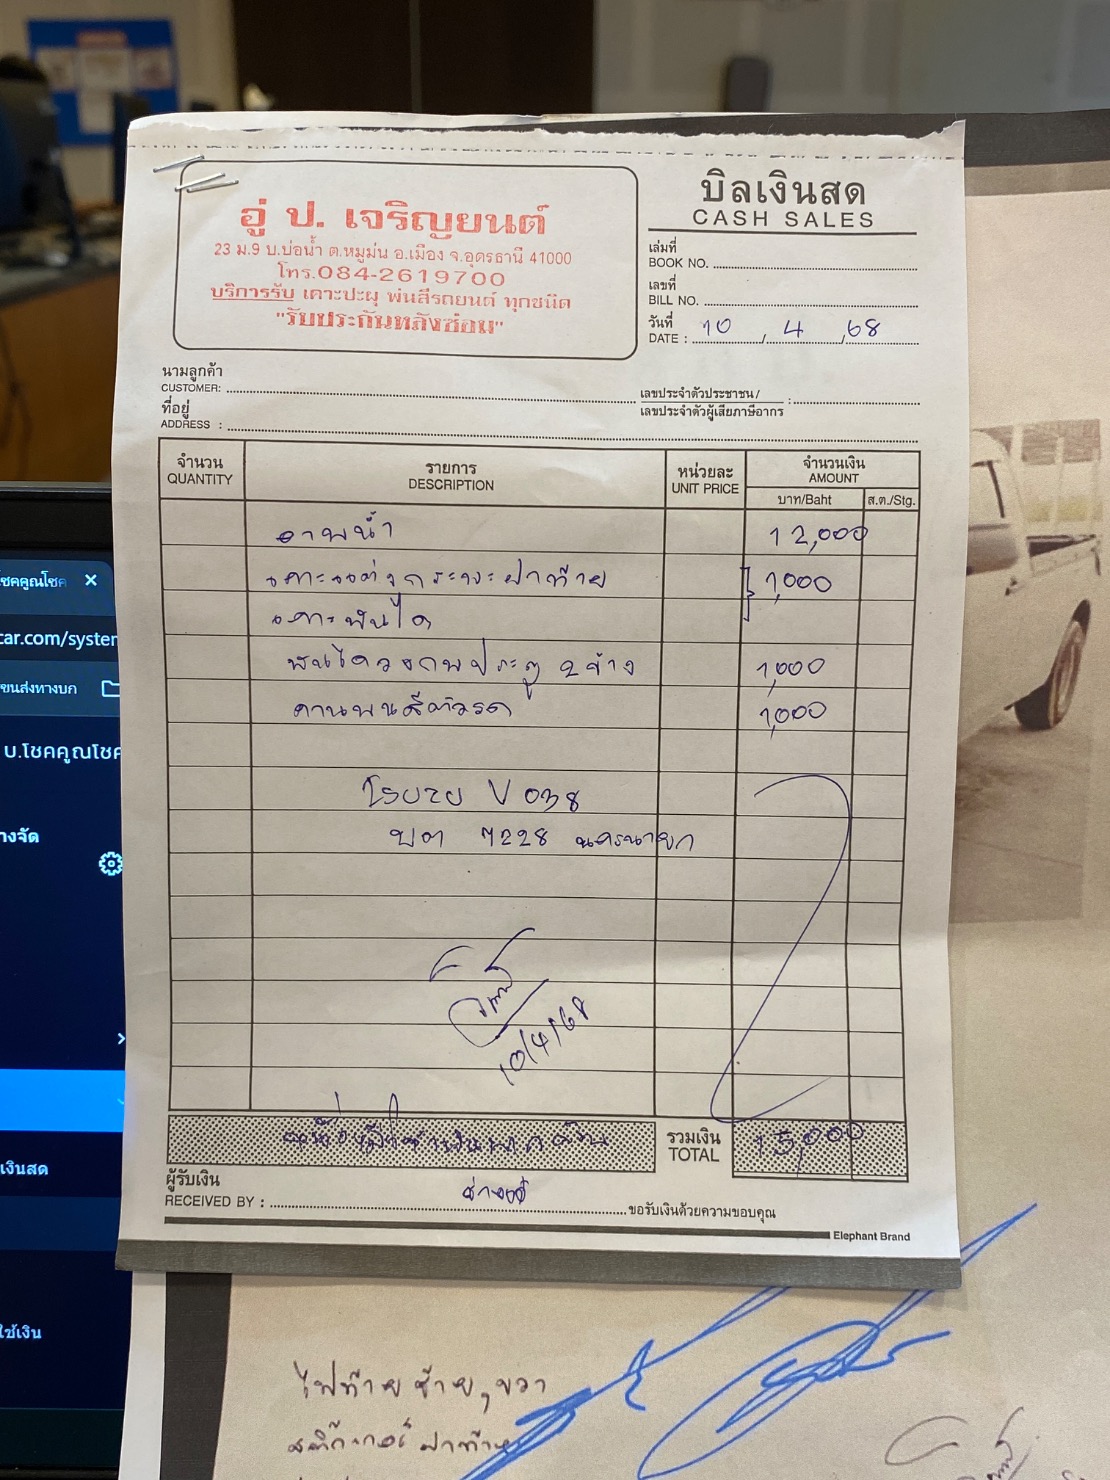 บิลเงินสด
CASH SALES
อู่ ป. เจริญยนต์
23 ม.9 บ.บ่อน้ำ ต.หมูม่น อ.เมือง จ.อุดรธานี 41000
โทร.084-2619700
บริการรับ เคาะปะผุ พ่นสีรถยนต์ ทุกชนิด
"รับประกันหลังซ่อม"
เล่มที่
BOOK NO.
เลขที่
BILL NO.
วันที่
DATE : 10 / 4 / 68
นามลูกค้า
CUSTOMER:
เลขประจำตัวประชาชน /
เลขประจำตัวผู้เสียภาษีอากร :
ที่อยู่
ADDRESS :
จำนวน รายการ หน่วยละ จำนวนเงิน
QUANTITY DESCRIPTION UNIT PRICE AMOUNT
บาท/Baht ส.ต./Stg.
อาพน้ำ 12,000
เคาะแต่งกระบะฝาท้าย 1,000
เคาะบันได
พ่นไดวงกบประตู 2 ข้าง 1,000
คานพ่นสีตัวรถ 1,000
V 038
บต 7228 นครนายก
10/4/68
รวมเงิน
TOTAL 15,000
ผู้รับเงิน
RECEIVED BY : ขอรับเงินด้วยความขอบคุณ
Elephant Brand
โชคคูณโชค
car.com/system
ขนส่งทางบก
บ.โชคคูณโชค
างจัด
เงินสด
ใช้เงิน
ไฟท้าย ซ้าย, ขวา
สติ๊กเกอร์ ฝาท้าย